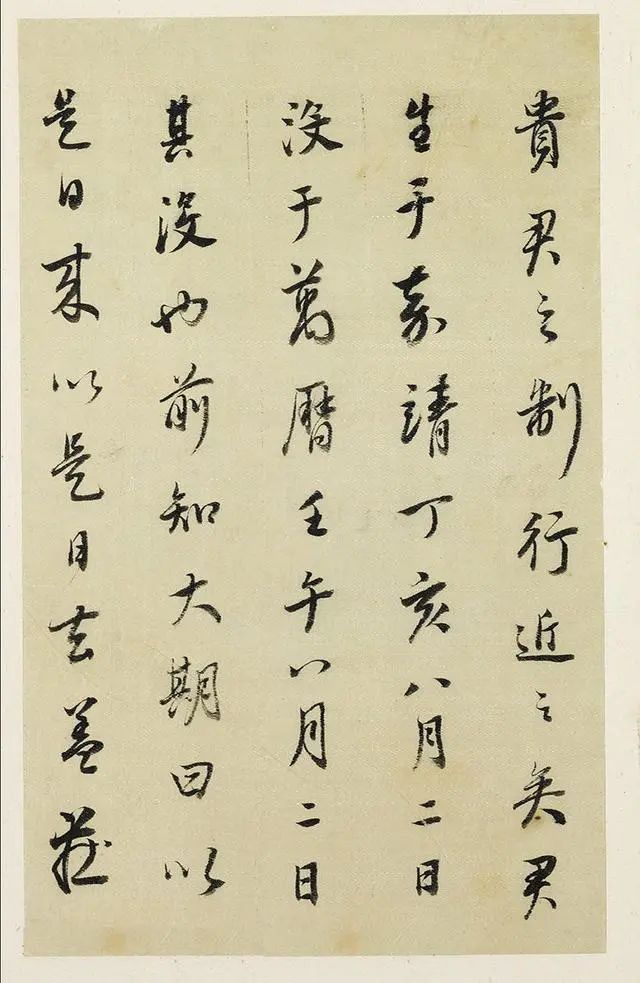 貴君之制行近之矣君
生于嘉靖丁亥八月二日
没于萬曆壬午八月二日
其没也前知大期曰以
是日來以是月去蓋莊